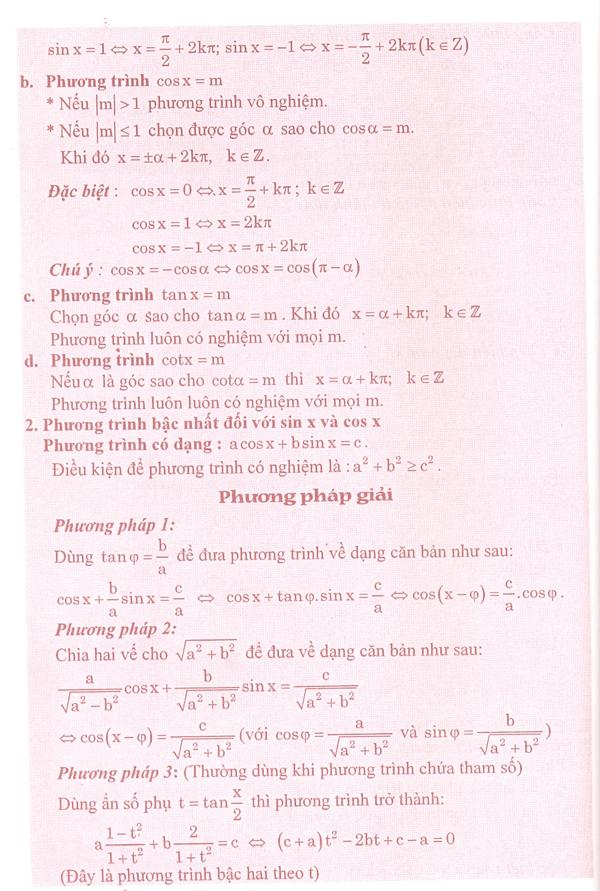 sin x = 1 ⇔ x = π/2 + 2kπ; sin x = −1 ⇔ x = −π/2 + 2kπ (k ∈ ℤ)
b. Phương trình cos x = m
* Nếu |m| > 1 phương trình vô nghiệm.
* Nếu |m| ≤ 1 chọn được góc α sao cho cos α = m.
Khi đó x = ±α + 2kπ, k ∈ ℤ.
Đặc biệt : cos x = 0 ⇔ x = π/2 + kπ ; k ∈ ℤ
cos x = 1 ⇔ x = 2kπ
cos x = −1 ⇔ x = π + 2kπ
Chú ý : cos x = −cos α ⇔ cos x = cos(π − α)
c. Phương trình tan x = m
Chọn góc α sao cho tan α = m . Khi đó x = α + kπ; k ∈ ℤ
Phương trình luôn có nghiệm với mọi m.
d. Phương trình cotx = m
Nếu α là góc sao cho cotα = m thì x = α + kπ; k ∈ ℤ
Phương trình luôn luôn có nghiệm với mọi m.
2. Phương trình bậc nhất đối với sin x và cos x
Phương trình có dạng : a cos x + b sin x = c .
Điều kiện để phương trình có nghiệm là : a² + b² ≥ c² .
Phương pháp giải
Phương pháp 1:
Dùng tan φ = b/a để đưa phương trình về dạng căn bản như sau:
cos x + b/a sin x = c/a ⇔ cos x + tan φ. sin x = c/a ⇔ cos(x − φ) = c/a . cos φ .
Phương pháp 2:
Chia hai vế cho √(a² + b²) để đưa về dạng căn bản như sau:
a/√(a² − b²) cos x + b/√(a² + b²) sin x = c/√(a² + b²)
⇔ cos(x − φ) = c/√(a² + b²) (với cos φ = a/√(a² + b²) và sin φ = b/√(a² + b²) )
Phương pháp 3: (Thường dùng khi phương trình chứa tham số)
Dùng ẩn số phụ t = tan x/2 thì phương trình trở thành:
a (1 − t²)/(1 + t²) + b 2/(1 + t²) = c ⇔ (c + a)t² − 2bt + c − a = 0
(Đây là phương trình bậc hai theo t)